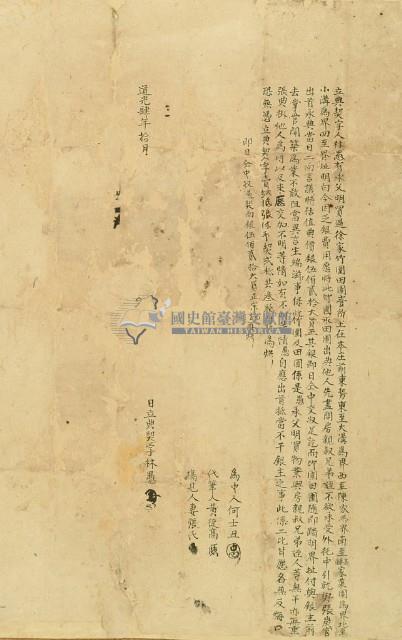 立典契字人林愚有承父明買過徐家竹圍田園壹所土在本庄前東勢東至大溝為界西至陳家為界南至 家東園為界北至
小溝為界四至界址明白今因乏銀費用愿將此竹圍瓦田園出典他人先盡問房親叔兄弟姪不欲承受外托中引就與張
出首承典當日三面言議時估值典價銀伍佰貳拾大員正其銀即日仝中交收足訖而竹圍田園隨即踏明界址付與銀主前
去掌管開築為業不敢阻當異言生端滋事保此竹園及田園係是愚承父明買物業與房親叔兄弟姪人等無干亦無重
張典掛他人為碍以及來歷交加不明等情如有不 情愚自應出首抵當不干銀主之事此係二比甘愿各無反悔口
恐無憑立典契字壹紙 為炤
即日仝中收過契面銀伍佰貳拾大員正
道光肆年拾月 日立典契字林愚
為中人何士丑
代筆人黃俊高
塲見人妻張氏
國史館臺灣文獻館
TAIWAN HISTORICA